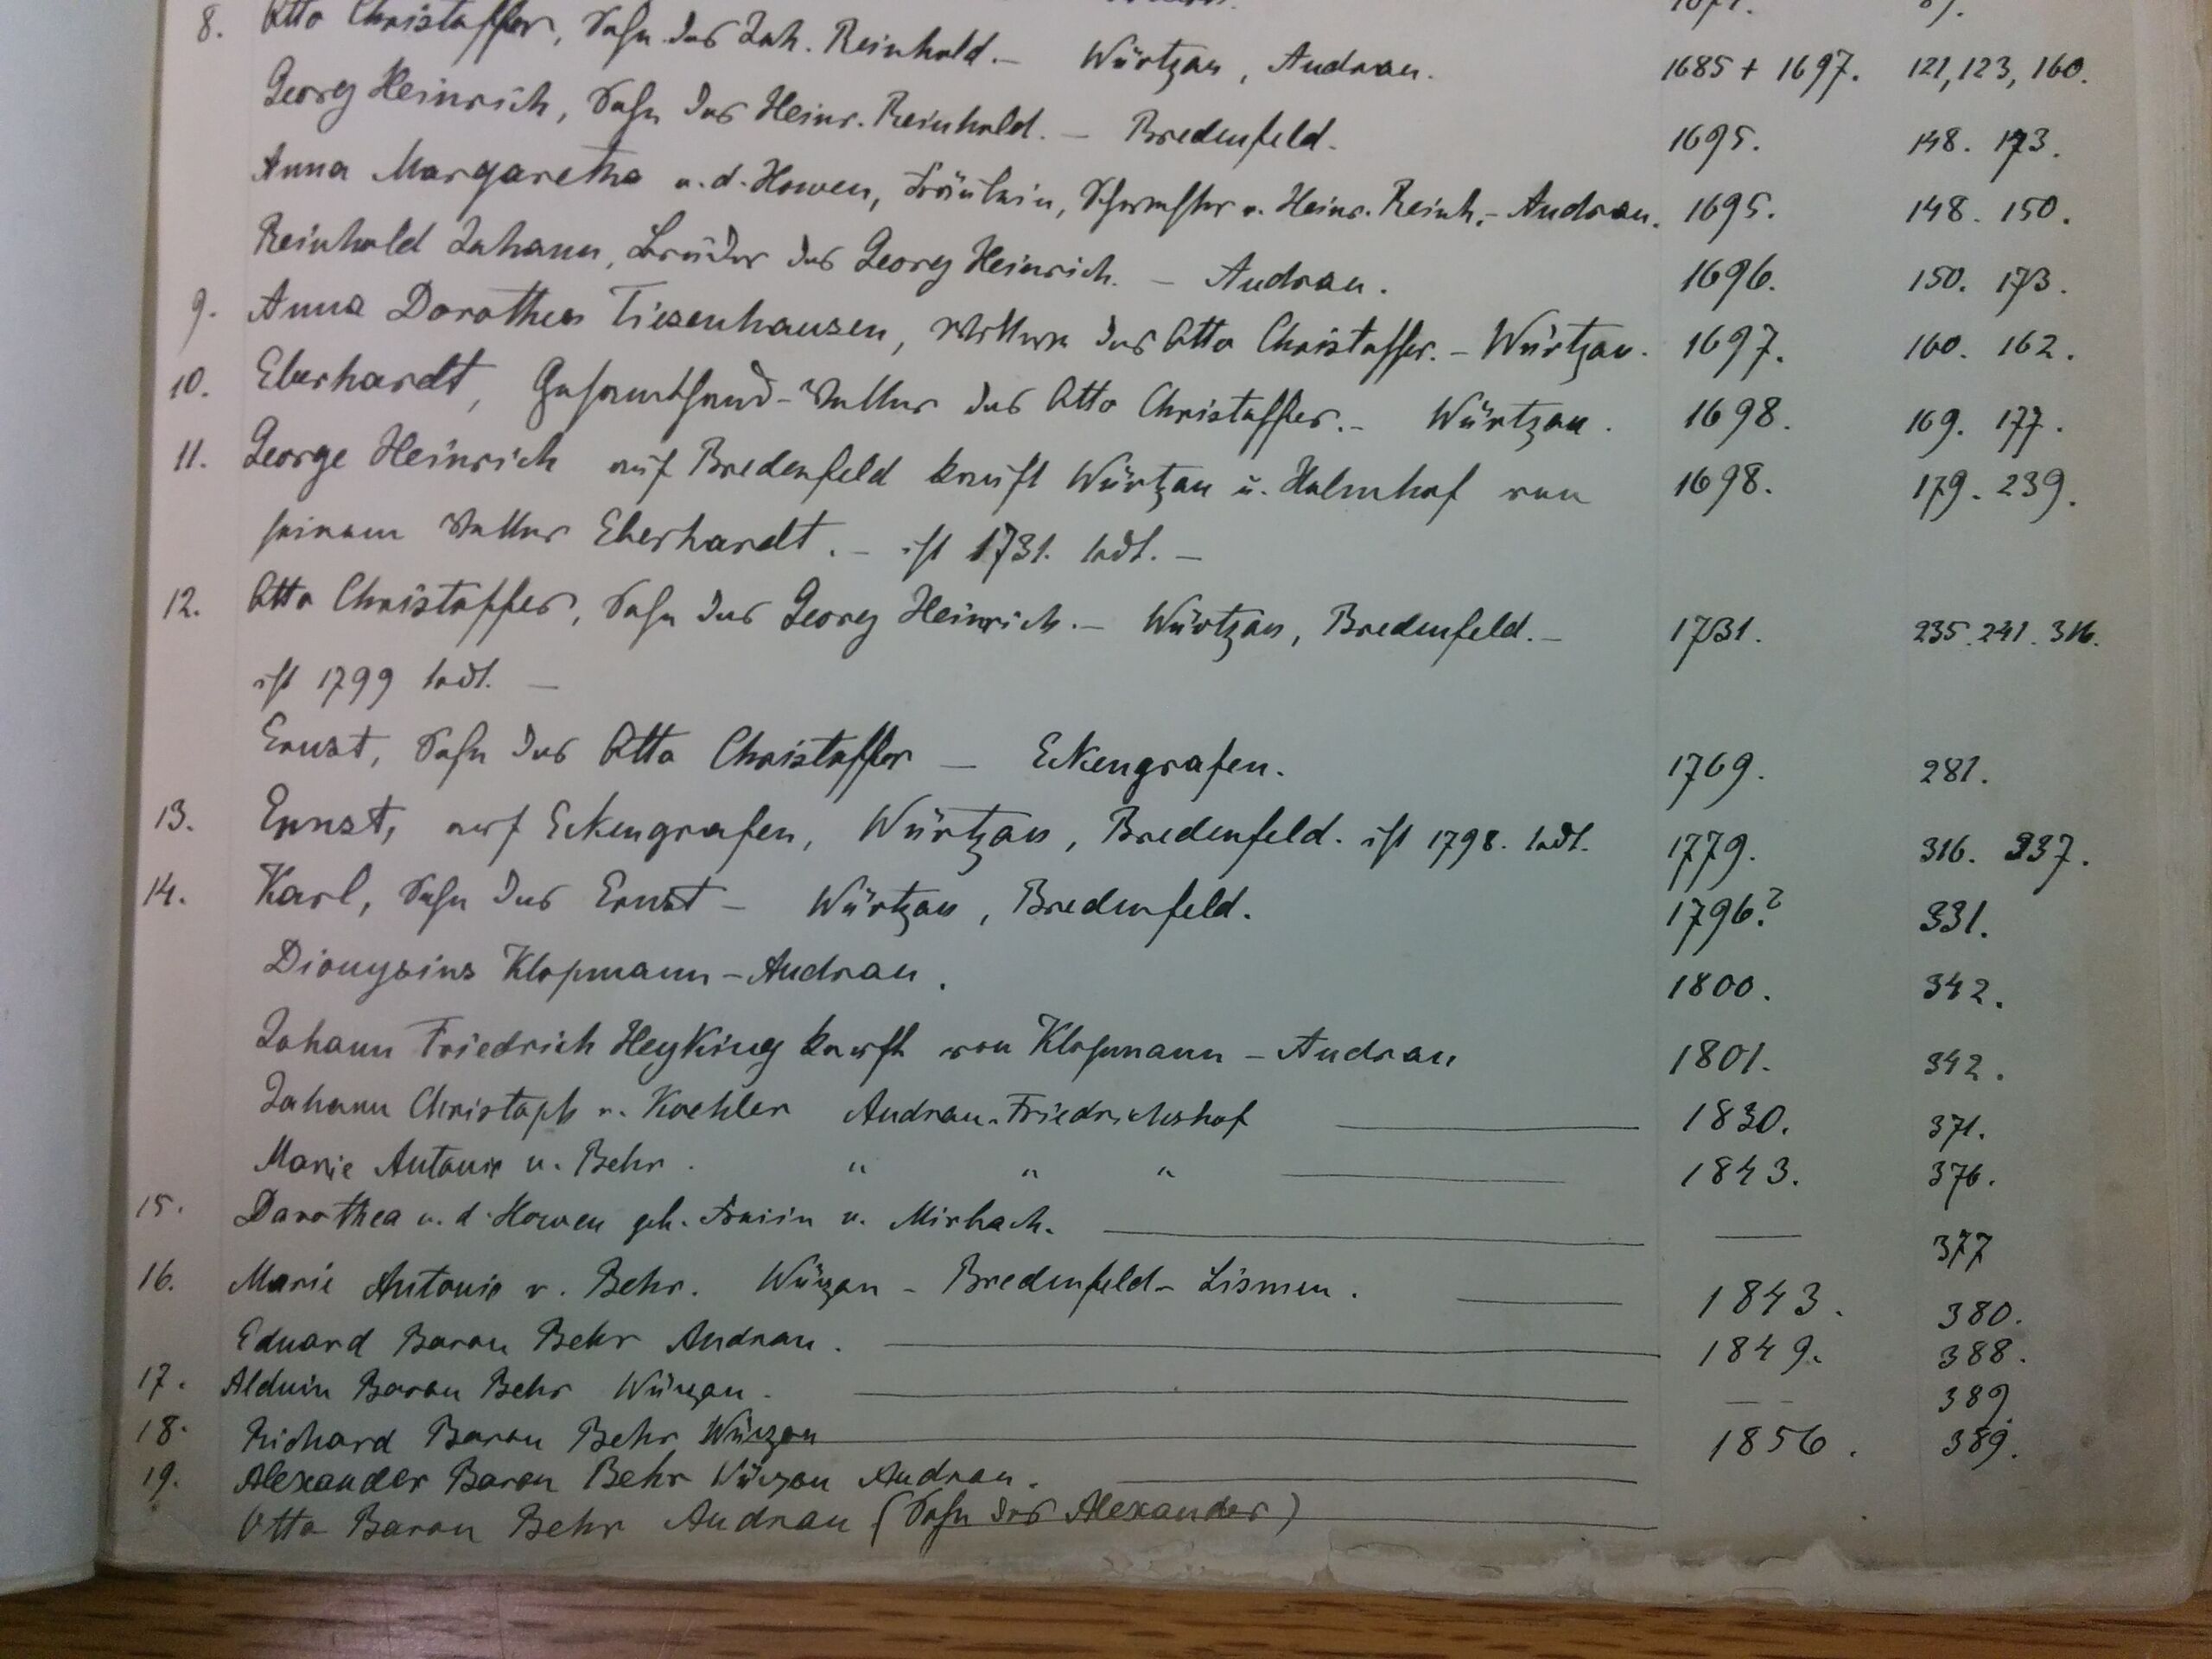 8. Otto Christoffer, Sohn des Joh. Reinhold. – Würtzau, Audrau. 1685 + 1697. 121, 123, 160.
Georg Heinrich, Sohn des Heinr. Reinhold. – Bredenfeld. 1695. 148. 173.
Anna Margaretha v. d. Howen, Fräulein, Schwester v. Heinr. Reinh. – Audrau. 1695. 148. 150.
Reinhold Johann, Bruder des Georg Heinrich. – Audrau. 1696. 150. 173.
9. Anna Dorothea Tiesenhausen, Wittwe des Otto Christoffer. – Würtzau. 1697. 160. 162.
10. Eberhardt, Gesamthand-Vetter des Otto Christoffer. – Würtzau. 1698. 169. 177.
11. George Heinrich auf Bredenfeld kauft Würtzau u. Holmhof von 1698. 179. 239.
seinem Vetter Eberhardt. – ist 1731. todt. –
12. Otto Christoffer, Sohn des Georg Heinrich. – Würtzau, Bredenfeld. – 1731. 235. 241. 316.
ist 1799 todt. –
Ernst, Sohn des Otto Christoffer – Eckengrafen. 1769. 281.
13. Ernst, auf Eckengrafen, Würtzau, Bredenfeld. ist 1798. todt. 1779. 316. 337.
14. Karl, Sohn des Ernst – Würtzau, Bredenfeld. 1796.? 331.
Dionysius Klopmann – Audrau. 1800. 342.
Johann Friedrich Heyking kauft von Klopmann – Audrau 1801. 342.
Johann Christoph v. Koehler Audrau-Friedrichshof 1830. 371.
Marie Antonie v. Behr. " " " 1843. 376.
15. Dorothea v. d. Howen geb. Freiin v. Mirbach. — 377
16. Marie Antonie v. Behr. Würzau – Bredenfeld – Lismen. 1843. 380.
Eduard Baron Behr Audrau. 1849. 388.
17. Alduin Baron Behr Würzau. — 389.
18. Richard Baron Behr Würzau 1856. 389.
19. Alexander Baron Behr Würzau Audrau.
Otto Baron Behr Audrau (Sohn des Alexander)